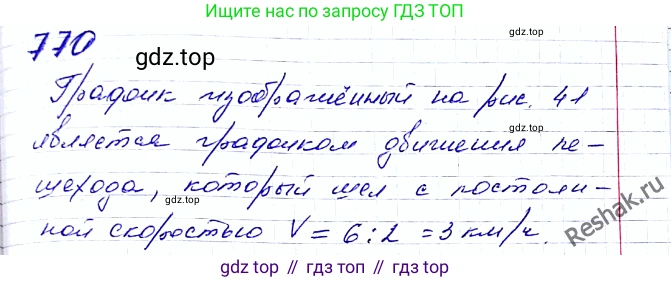 Ищите нас по запросу ГДЗ ТОП
770
gdz.top
График изображённый на рис. 41
gdz.top
является графиком движения пе-
шехода, который шел с постоян-
gdz.top
ной скоростью V = 6:2 = 3 км/ч.
Reshak.ru
gdz top // гдз топ // gdz.top